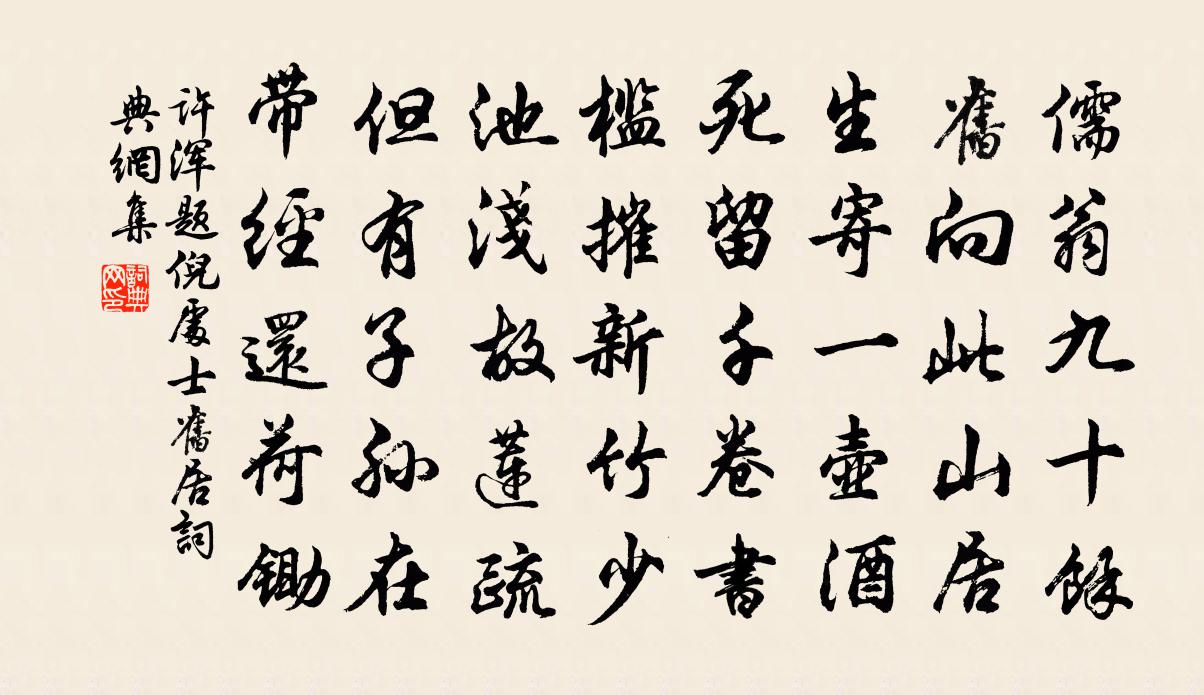 儒翁九十餘
舊向此山居
生寄一壺酒
死留千卷書
檻摧新竹少
池淺故蓮疏
但有子孫在
帶經還荷鋤
许渾題倪處士舊居詞
典網集
詞典网印